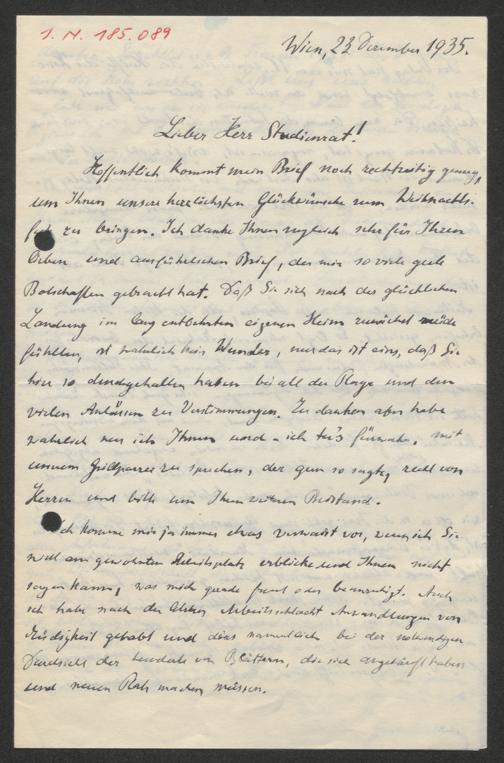 I. N. 185.089
Wien, 23 Dezember 1935.
Lieber Herr Studienrat!
Hoffentlich kommt mein Brief noch rechtzeitig genug,
um Ihnen unsere herzlichsten Glückwünsche zum Weihnachts-
fest zu bringen. Ich danke Ihnen zugleich sehr für Ihren
lieben und ausführlichen Brief, der mir so viele gute
Botschaften gebracht hat. Daß Sie sich nach der glücklichen
Landung im lang entbehrten eigenen Heim zunächst müde
fühlten, ist natürlich kein Wunder, nur das ist eins, daß Sie
hier so durchgehalten haben bei all der Plage und den
vielen Anlässen zu Verstimmungen. Zu danken aber habe
wahrlich nur ich Ihnen und – ich tu's fürwahr, mit
unserem Grillparzer zu sprechen, der gern so sagte, recht von
Herzen und bitte um Ihren weiteren Beistand.
Ich komme mir ja immer etwas verwaist vor, wenn ich Sie
nicht am gewohnten Arbeitsplatz erblicke und Ihnen nicht
sagen kann, was mich gerade freut oder beunruhigt. Auch
ich habe nach der Arbeitsschlacht Anwandlungen von
Müdigkeit gehabt und dies namentlich bei der notwendigen
Durchsicht der von Blättern, die sich angehäuft haben
und neuen Platz machen müssen.